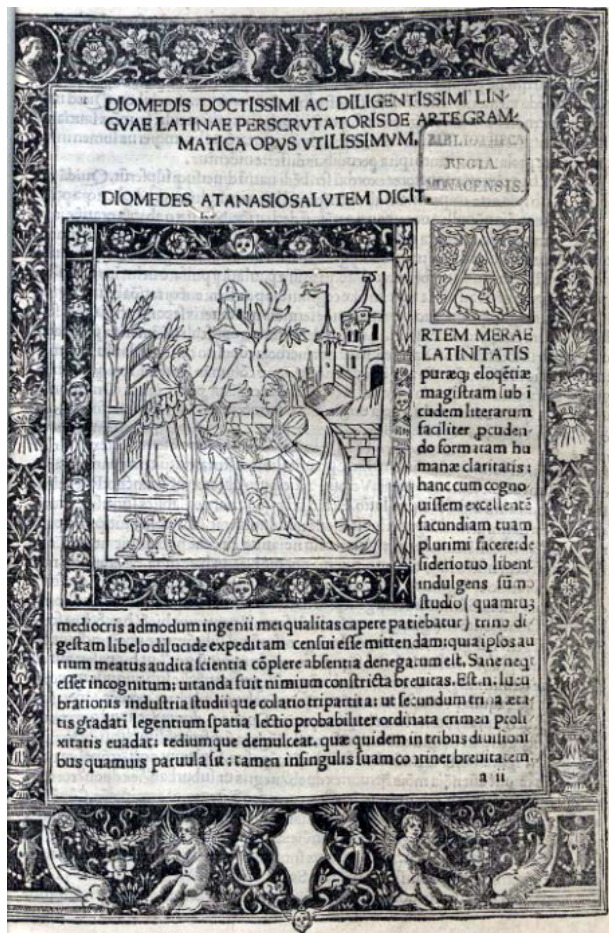 DIOMEDIS DOCTISSIMI AC DILIGENTISSIMI LIN-
GVAE LATINAE PERSCRVTATORIS DE ARTE GRAM-
MATICA OPVS VTILISSIMVM.
BIBLIOTHECA
REGIA
MONACENSIS.
DIOMEDES ATANASIO SALVTEM DICIT.
A
RTEM MERAE
LATINITATIS
puræq; eloqẽtiæ
magistram sub i
cudem literarum
faciliter ꝓcuden-
do formatam hu
manæ claritatis:
hanc cum cogno-
uissem excellentẽ
facundiam tuam
plurimi facere: de
siderio tuo libent
indulgens sũmo
studio ( quantuꝫ
mediocris admodum ingenii mei qualitas capere patiebatur ) trino di/
gestam libelo dilucide expeditam censui esse mittendam: quia ipsos au
rium meatus audita scientia cõplere absentia denegatum est. Sane neqꝫ
esset incognitum: uitanda fuit nimium constricta breuitas. Est.n. lucu
brationis industria studiique colatio tripartita: ut secundum trina æta-
tis gradati legentium spatia lectio probabiliter ordinata crimen proli/
xitatis euadat: tediumque demulceat. quæ quidem in tribus diuisioni
bus quamuis paruula sit: tamen in singulis suam continet breuitatem.
a ii